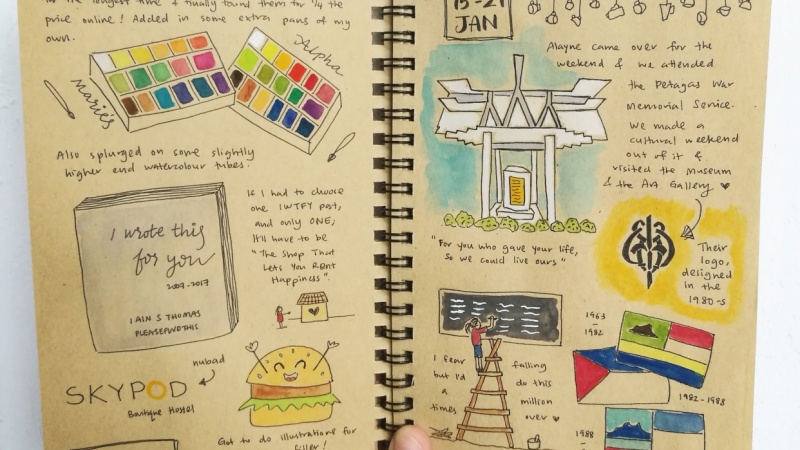 for the longest time & finally found them for 1/4 the
price online! Added in some extra pans of my
own.
Marie's
Alpha
Also splurged on some slightly
higher end watercolour tubes.
I wrote this
for you
2007-2017
IAIN S THOMAS
PLEASEFINDTHIS
If I had to choose
one IWTFY post,
and only ONE,
It'll have to be
"The Shop That
Lets You Rent
Happiness".
nubad
SKYPOD
Boutique Hostel
Got to do illustrations for
filler!
15-21
JAN
Alayne came over for the
weekend & we attended
the Petagas War
Memorial Service.
We made a
cultural weekend
out of it &
visited the Museum
& the Art Gallery ♥
"For you who gave your life,
so we could live ours"
Their
logo,
designed
in the
1980-s
I fear
but I'd
a
times
falling
do this
million
over ♥
1963
-
1982
1982-1988
1988
-